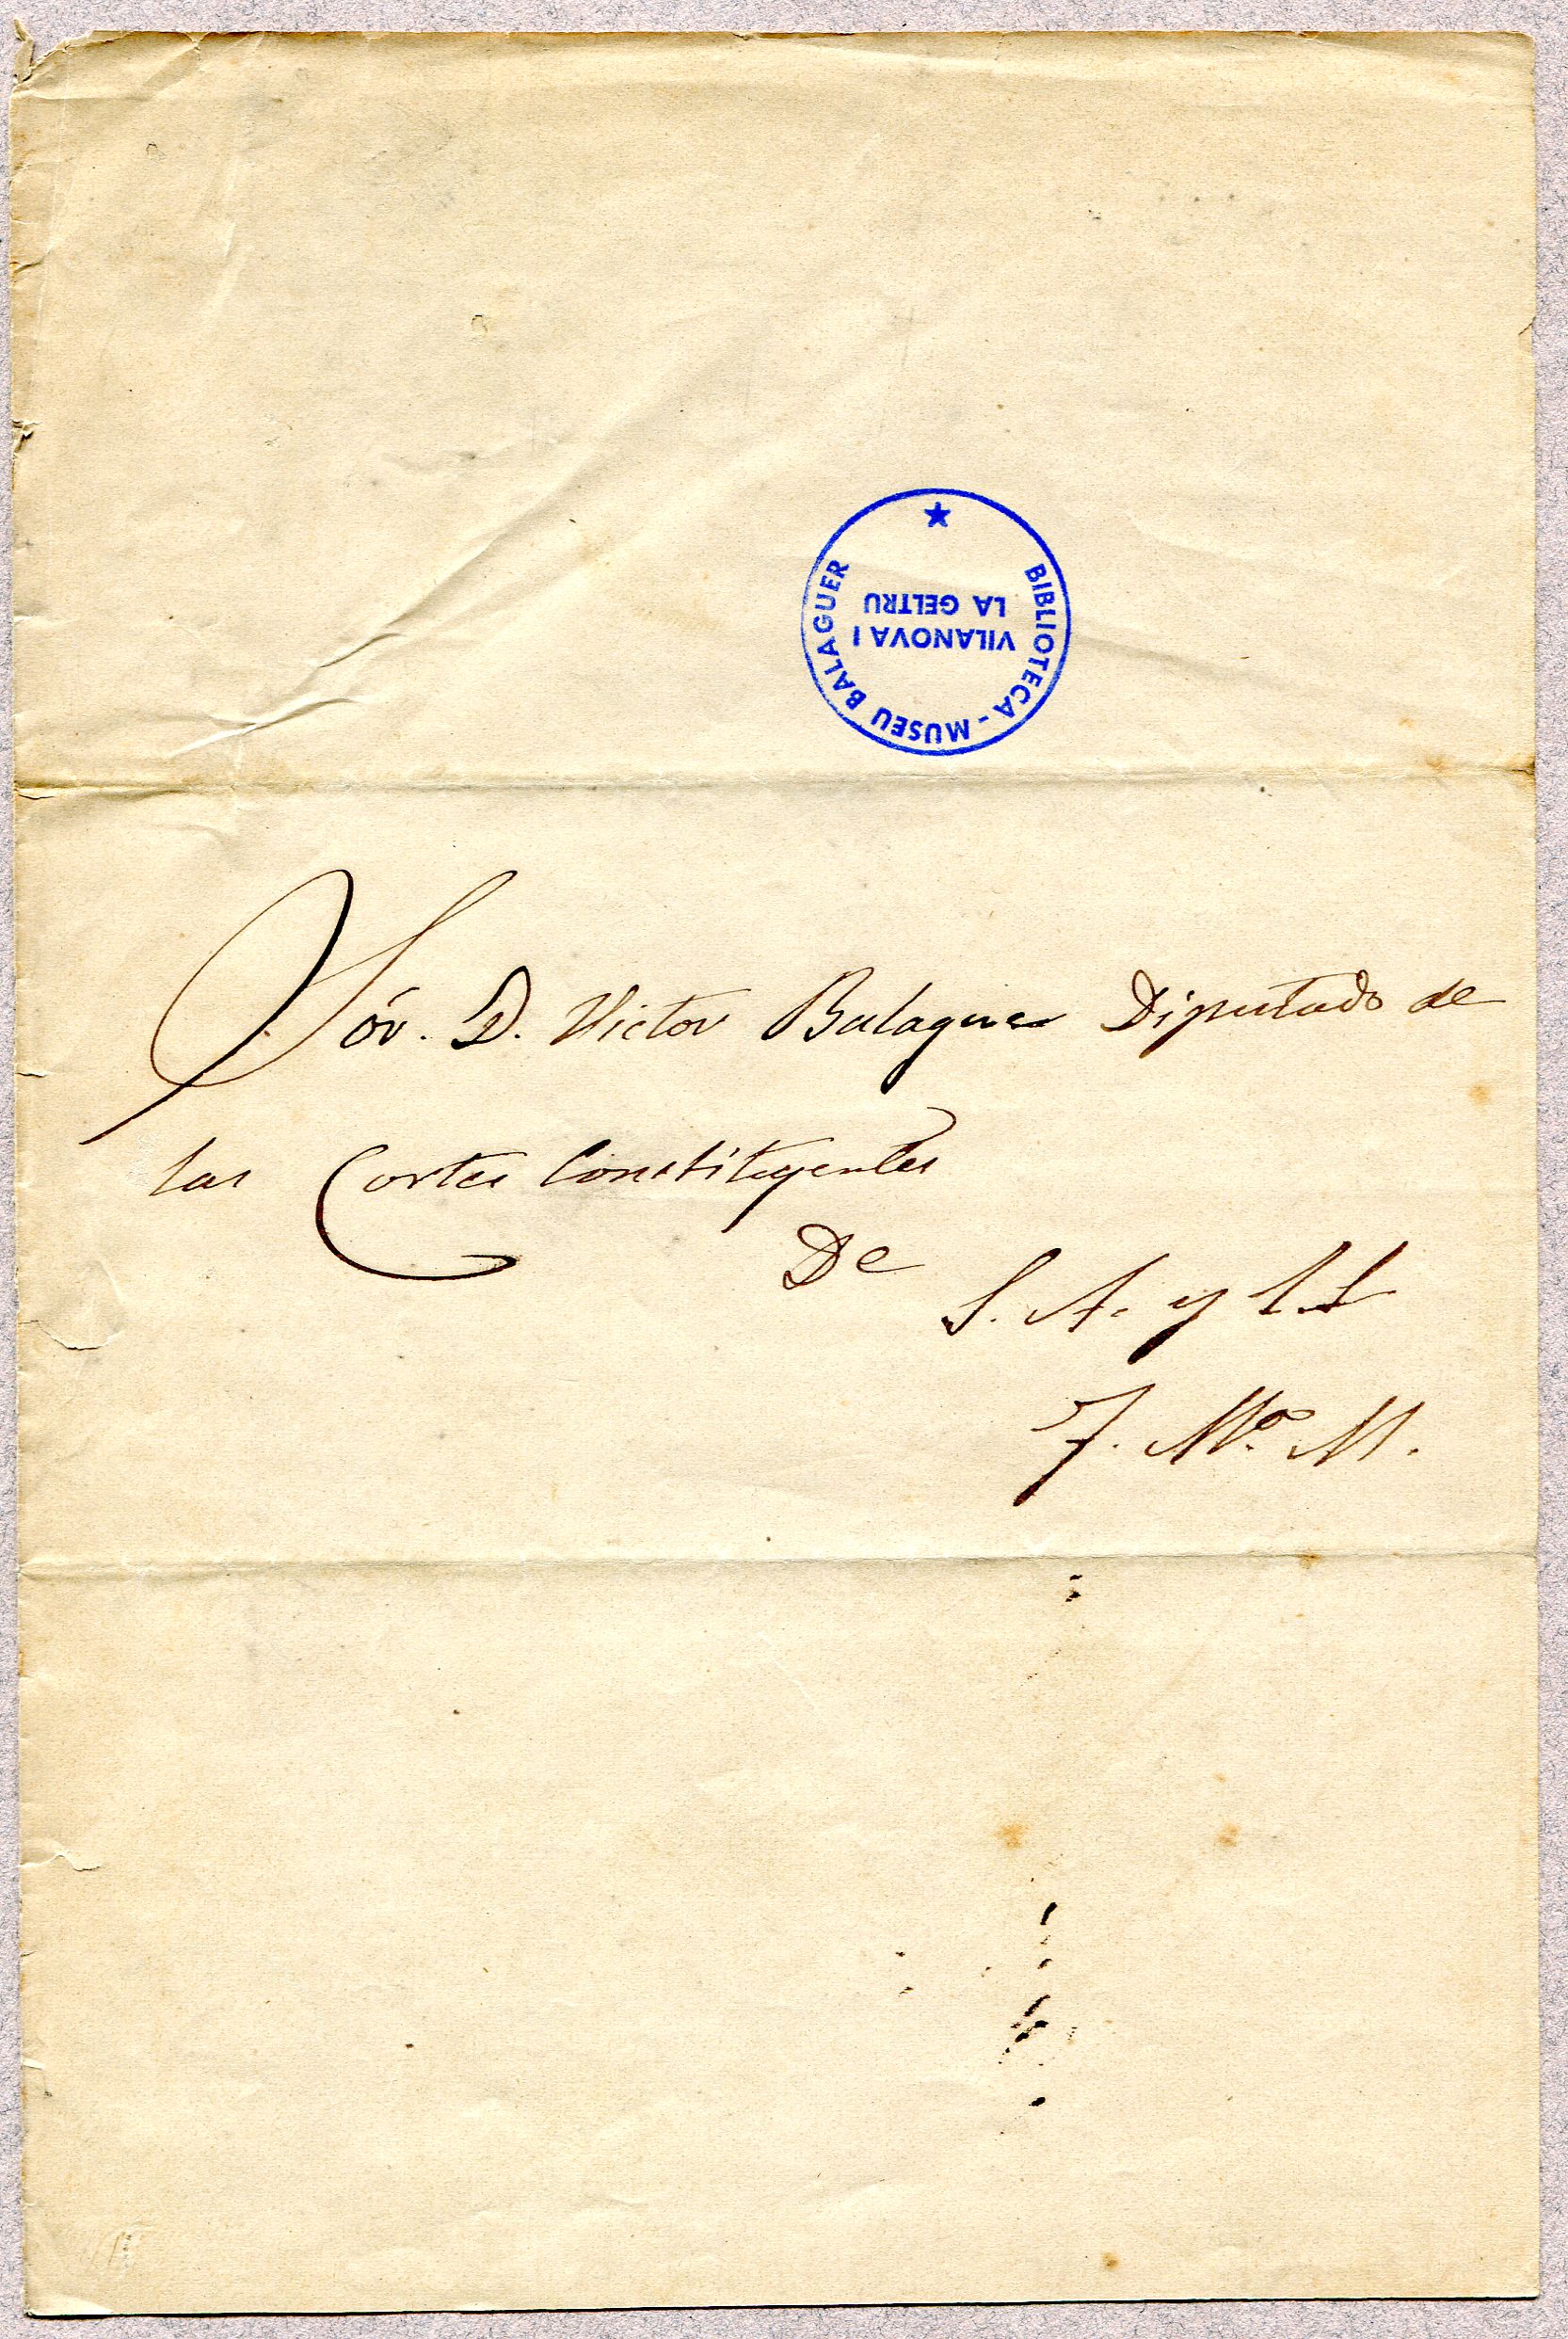 BIBLIOTECA - MUSEU BALAGUER
VILANOVA I
LA GELTRU
Sór. D. Victor Balaguer Diputado de
las Cortes Constituyentes
De
S. A. y S. S
J. Mª. M.